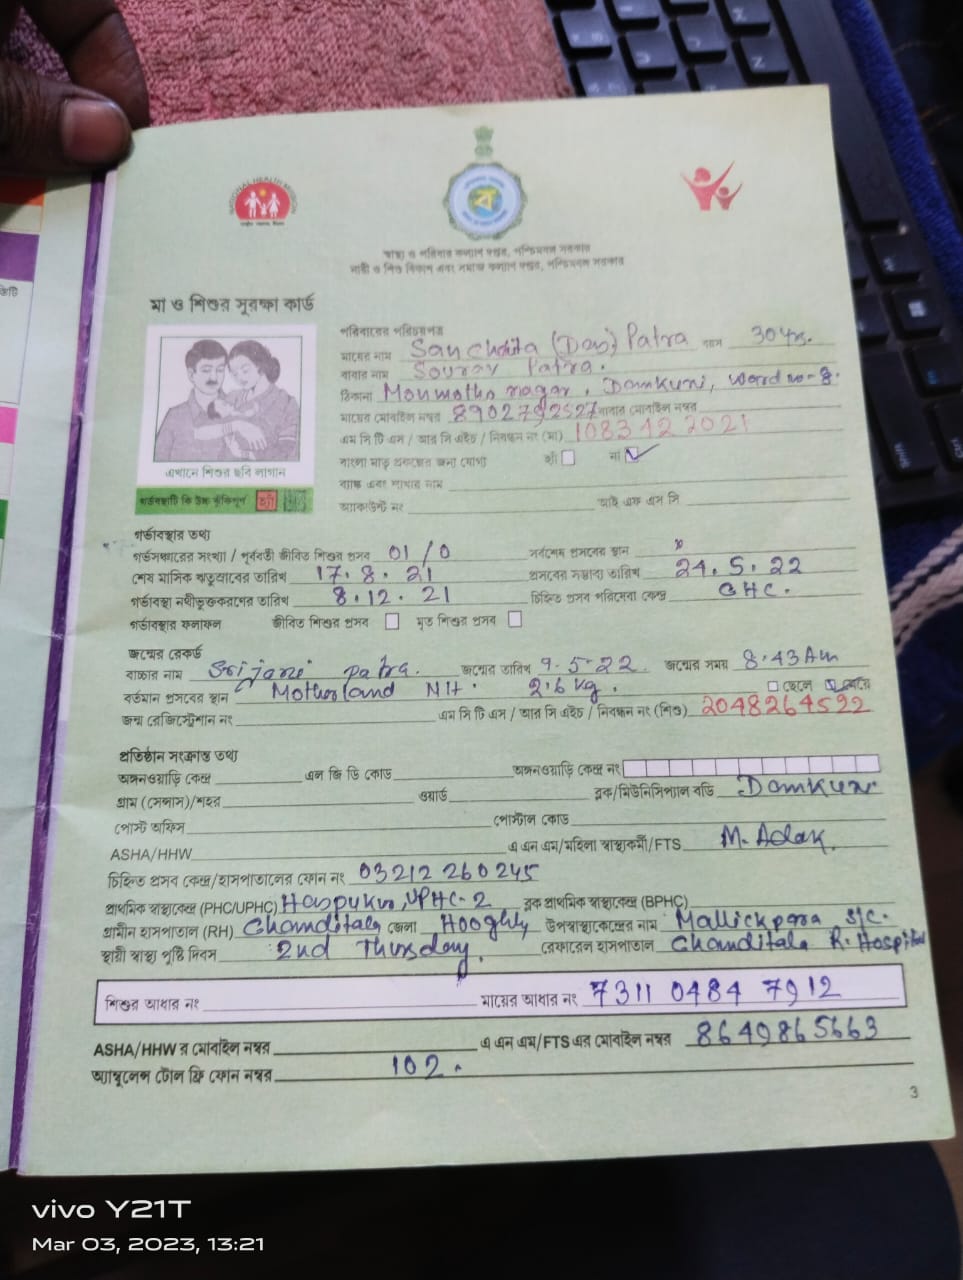 NATIONAL HEALTH MISSION
স্বাস্থ্য ও পরিবার কল্যাণ দপ্তর, পশ্চিমবঙ্গ সরকার
নারী ও শিশু বিকাশ এবং সমাজ কল্যাণ দপ্তর, পশ্চিমবঙ্গ সরকার
মা ও শিশুর সুরক্ষা কার্ড
পরিবারের পরিচয়পত্র
মায়ের নাম Sanchita (Das) Patra বয়স 30 yrs.
বাবার নাম Sourav Patra.
ঠিকানা Monmotho nagar, Dankuni, word no-8.
মায়ের মোবাইল নম্বর 8902792527 বাবার মোবাইল নম্বর
এম সি টি এস / আর সি এইচ / নিবন্ধন নং (মা) 108342 2021
বাংলা মাতৃ প্রকল্পের জন্য যোগ্য হ্যাঁ না
ব্যাঙ্ক এবং শাখার নাম
অ্যাকাউন্ট নং আই এফ এস সি
এখানে শিশুর ছবি লাগান
গর্ভাবস্থাটি কি উচ্চ ঝুঁকিপূর্ণ হ্যাঁ
গর্ভাবস্থার তথ্য
গর্ভসঞ্চারের সংখ্যা / পূর্ববর্তী জীবিত শিশুর প্রসব 01/0 সর্বশেষ প্রসবের স্থান x
শেষ মাসিক ঋতুস্রাবের তারিখ 17.8.21 প্রসবের সম্ভাব্য তারিখ 24.5.22
গর্ভাবস্থা নথীভুক্তকরণের তারিখ 8.12.21 চিহ্নিত প্রসব পরিসেবা কেন্দ্র GHC.
গর্ভাবস্থার ফলাফল জীবিত শিশুর প্রসব মৃত শিশুর প্রসব
জন্মের রেকর্ড
বাচ্চার নাম Srijani Patra. জন্মের তারিখ 9.5.22. জন্মের সময় 8.43 Am
বর্তমান প্রসবের স্থান Motherland NH. 2.6 kg. ছেলে মেয়ে
জন্ম রেজিস্ট্রেশান নং এম সি টি এস / আর সি এইচ / নিবন্ধন নং (শিশু) 2048264522
প্রতিষ্ঠান সংক্রান্ত তথ্য
অঙ্গনওয়াড়ি কেন্দ্র এল জি ডি কোড অঙ্গনওয়াড়ি কেন্দ্র নং
গ্রাম (সেন্সাস)/শহর ওয়ার্ড ব্লক/মিউনিসিপ্যাল বডি Dankuni
পোস্ট অফিস পোস্টাল কোড
ASHA/HHW এ এন এম/মহিলা স্বাস্থ্যকর্মী/FTS M. Adak.
চিহ্নিত প্রসব কেন্দ্র/হাসপাতালের ফোন নং 03212 260245
প্রাথমিক স্বাস্থ্যকেন্দ্র (PHC/UPHC) UPHC-2 ব্লক প্রাথমিক স্বাস্থ্যকেন্দ্র (BPHC)
গ্রামীন হাসপাতাল (RH) Chanditala জেলা Hooghly উপস্বাস্থ্যকেন্দ্রের নাম Mallickpara s/c.
স্থায়ী স্বাস্থ্য পুষ্টি দিবস 2nd Thursday. রেফারেল হাসপাতাল Chanditala R. Hospital
শিশুর আধার নং মায়ের আধার নং 7311 0484 7912
ASHA/HHW র মোবাইল নম্বর এ এন এম/FTS এর মোবাইল নম্বর 8649865663
অ্যাম্বুলেন্স টোল ফ্রি ফোন নম্বর 102.
3
vivo Y21T
Mar 03, 2023, 13:21